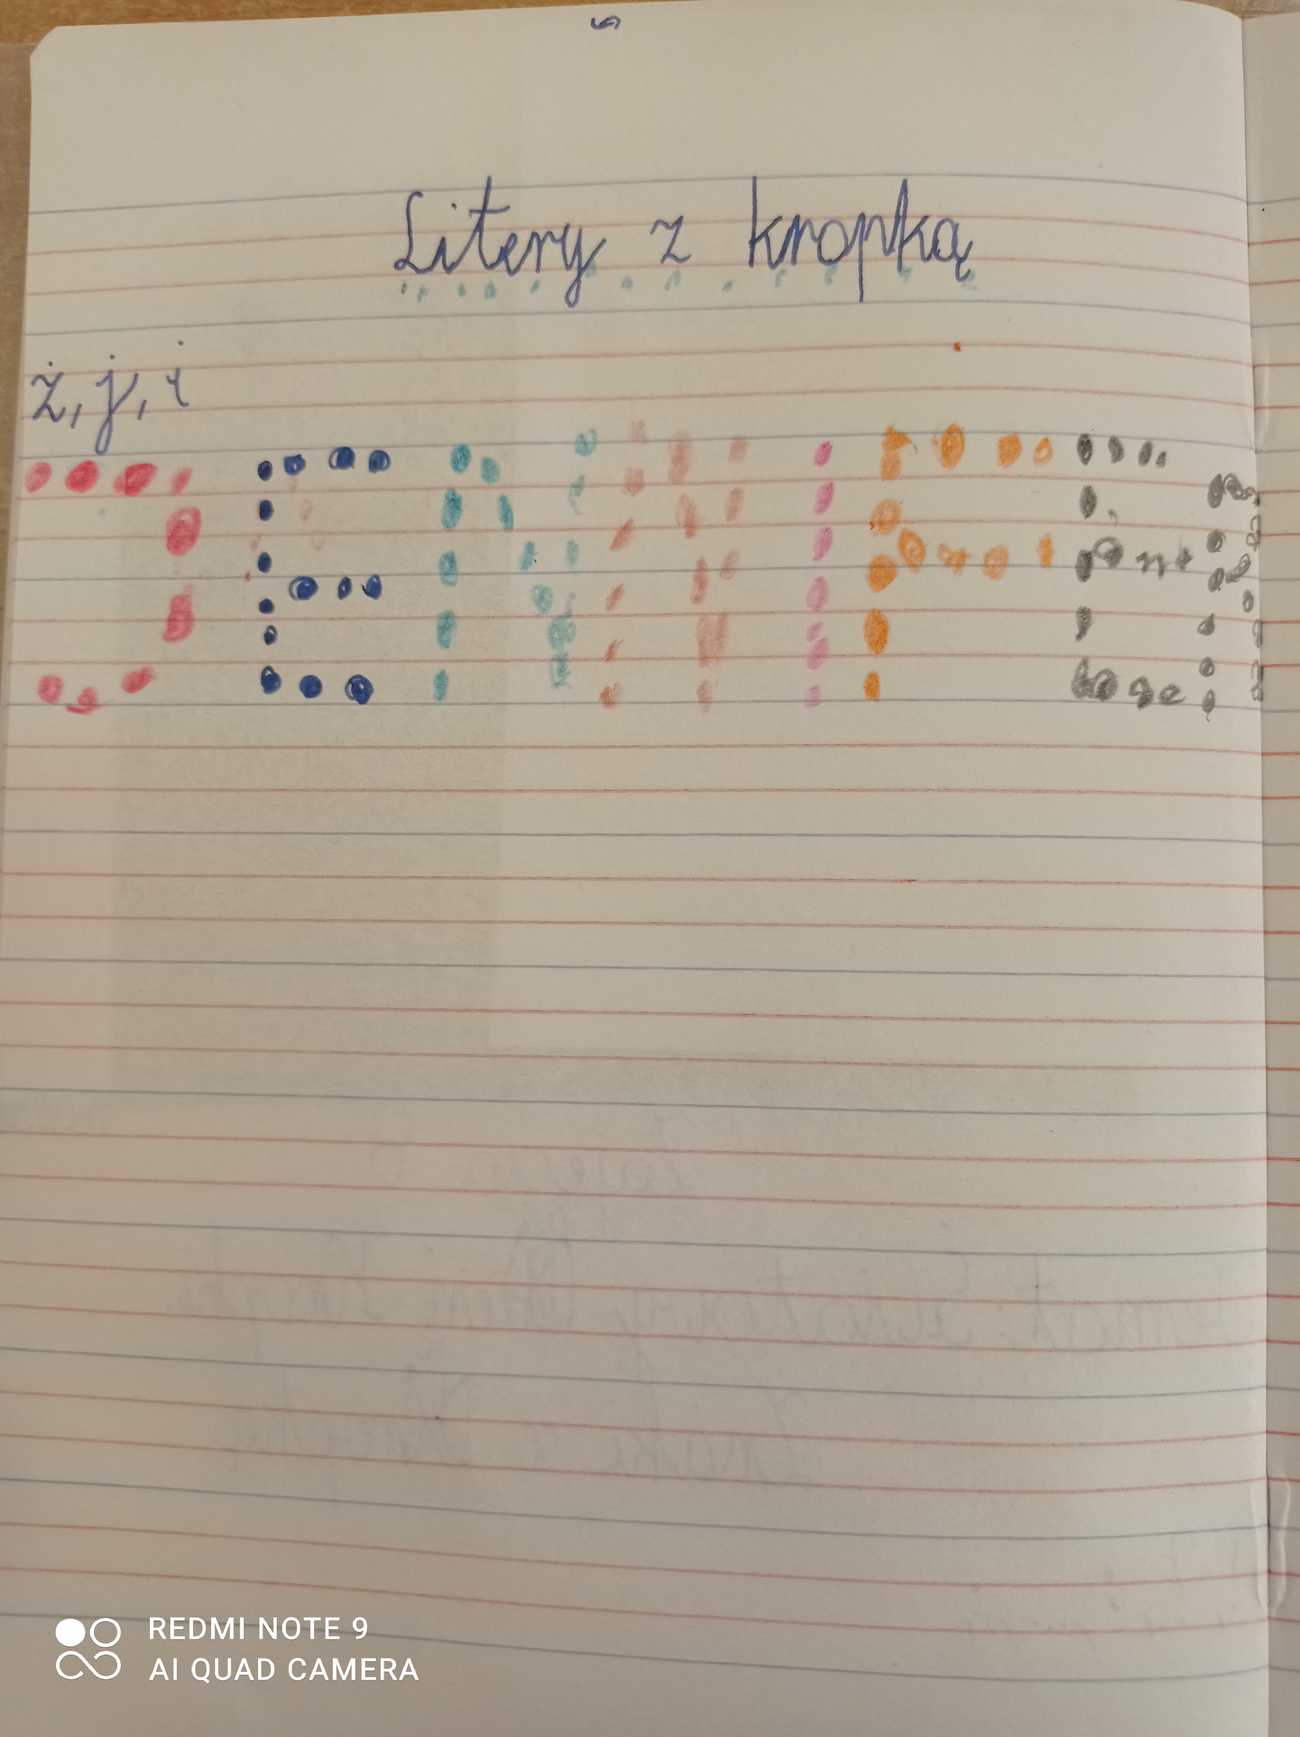 Litery z kropką
ż, j, i
JENNIFER
REDMI NOTE 9
AI QUAD CAMERA